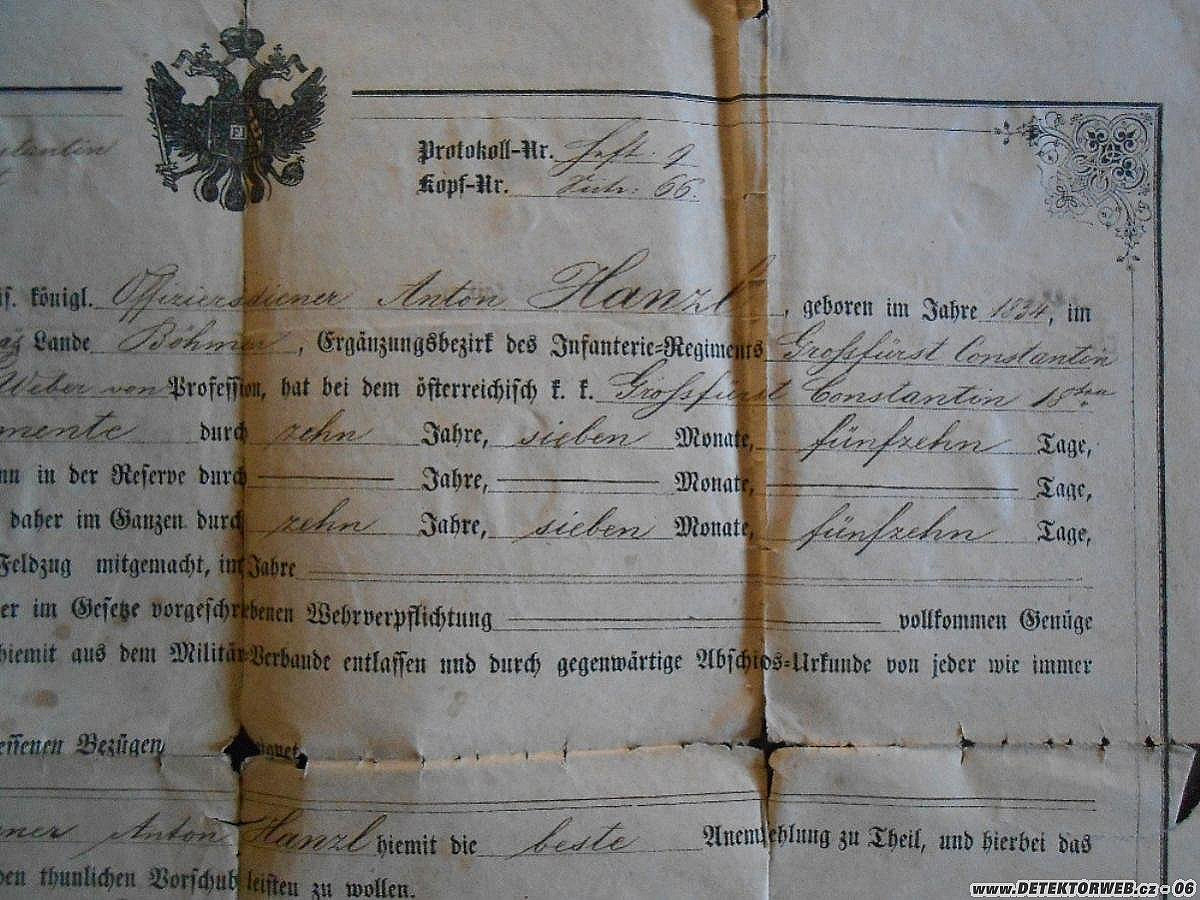 stantin
FJ
Protokoll-Nr. Heft: 9
Kopf-Nr. 66.
is. königl. Offiziersdiener Anton Hanzl, geboren im Jahre 1834, im
Lande Böhmen, Ergänzungsbezirk des Infanterie-Regiments Grossfürst Constantin
Weber von Profession, hat bei dem österreichisch k. k. Grossfürst Constantin 18ten
mente durch zehn Jahre, sieben Monate, fünfzehn Tage,
nn in der Reserve durch Jahre, Monate, Tage,
daher im Ganzen durch zehn Jahre, sieben Monate, fünfzehn Tage,
Feldzug mitgemacht, im Jahre
er im Gesetze vorgeschriebenen Wehrverpflichtung vollkommen Genüge
hiemit aus dem Militär-Verbande entlassen und durch gegenwärtige Abschids-Urkunde von jeder wie immer
essenen Bezügen
ner Anton Hanzl hiemit die beste Anempfehlung zu Theil, und hierbei das
en thunlichen Vorschub leisten zu wollen.
www.DETEKTORWEB.cz - 06